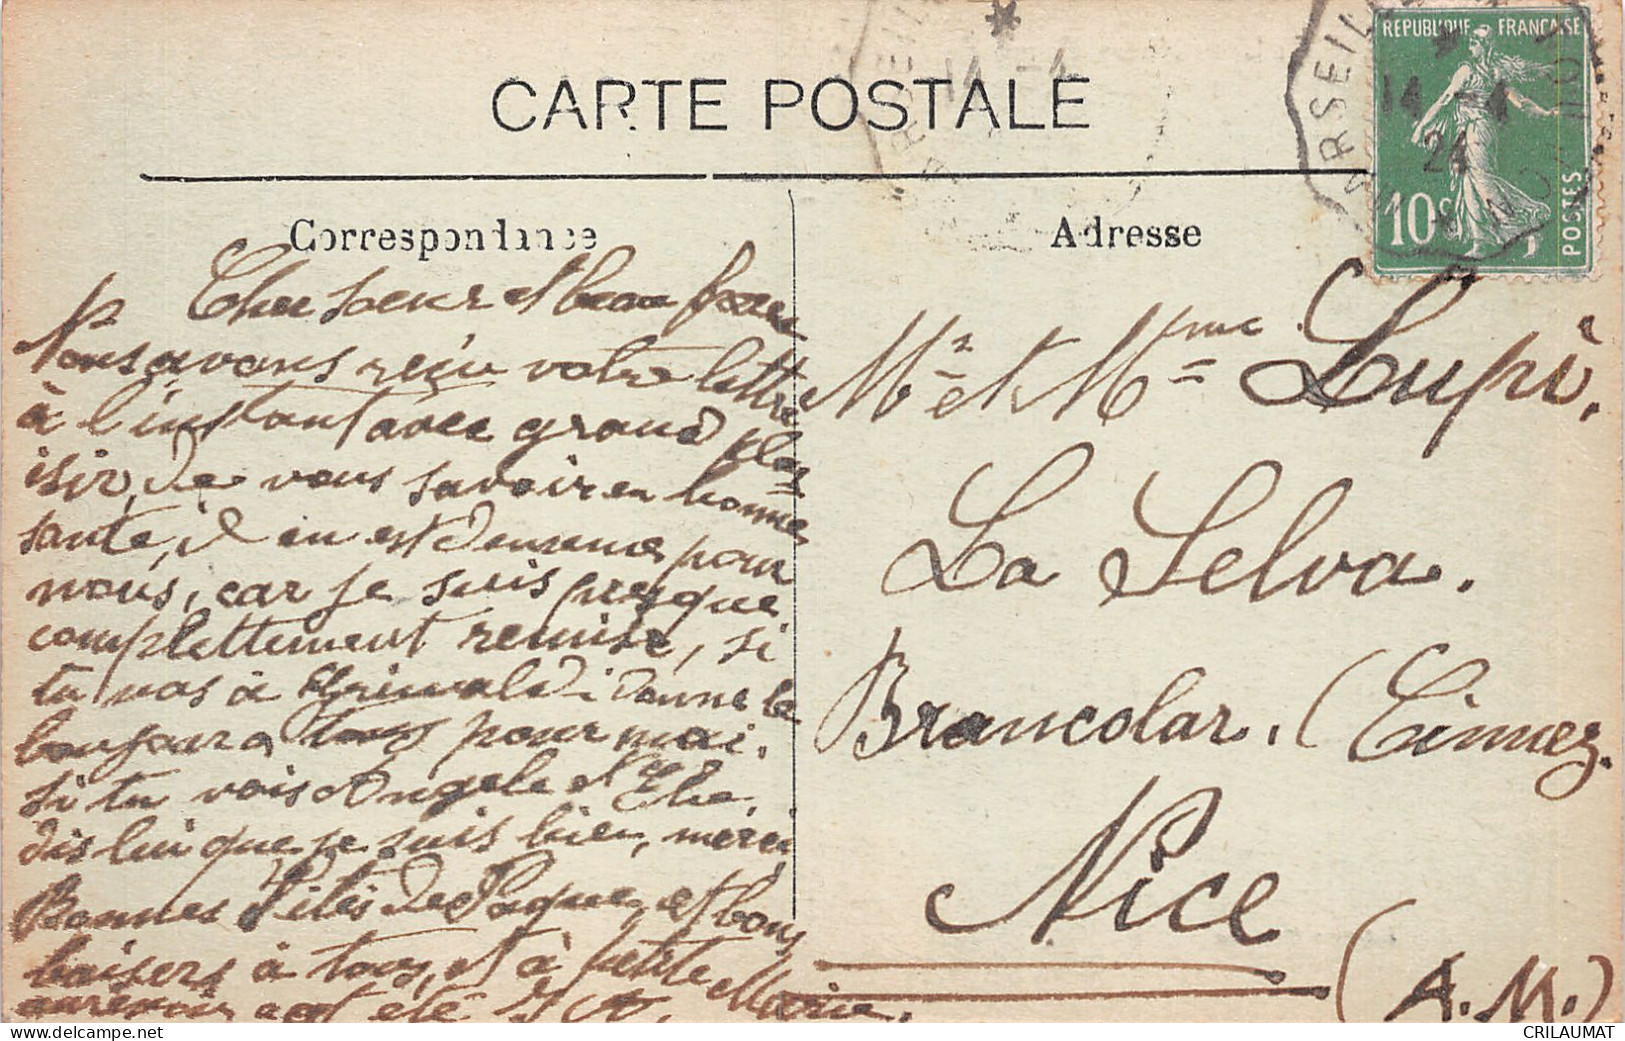 CARTE POSTALE
RÉPUBLIQUE FRANÇAISE
14 - 4
24
10c
POSTES
Correspondance
Adresse
Cher soeur et beau frere
Nous avons reçu votre lettre
à l'instant avec grand pla
isir, de vous savoir en bonne
sante, il en est de meme pour
nous, car je suis presque
complettement remise, si
tu vas à Grimaldi donne le
bonjour a tous pour moi.
si tu vois Angele et
dis lui que je suis bien, merci,
Bonnes Fêtes de Paque, et bons
baisers à tous, et à petite Marie.
aurevoir
Mr et Mme Lupi.
La Selva.
Brancolar. (Cimiez.
Nice
(A.M.)
CRILAUMAT